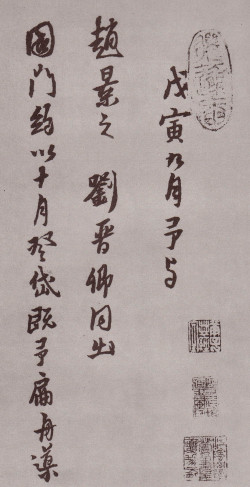 戊寅九月予与
趙景之 劉晉卿同出
國門約以十月登岱既予扁舟